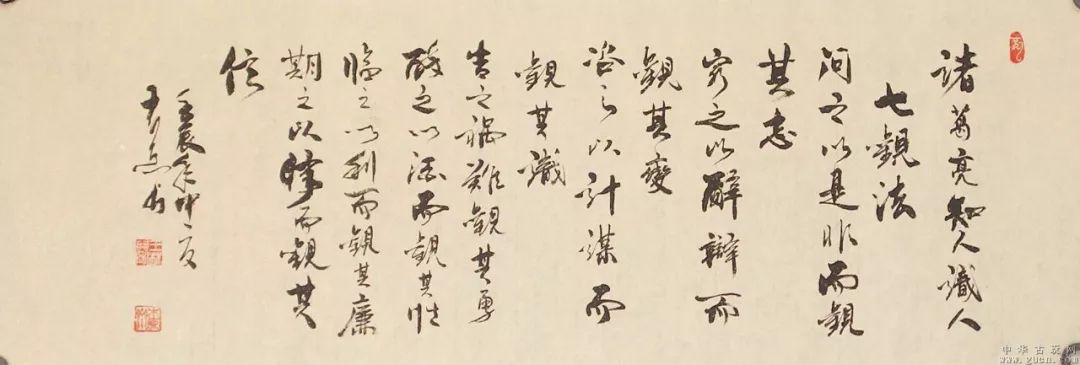 諸葛亮知人識人
七觀法
问之以是非而觀
其志
窮之以辭辯而
觀其變
咨之以计謀而
觀其識
告之禍難觀其勇
醉之以酒而觀其性
临之以利而觀其廉
期之以事而觀其
信
壬辰年仲夏
书
中华古玩网
www.gucn.com